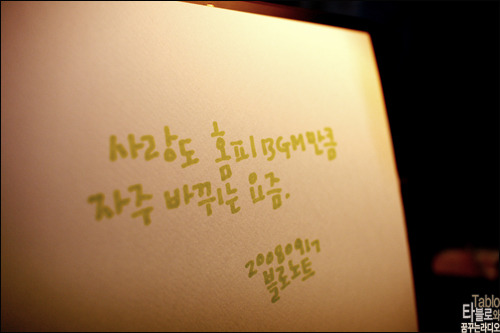 사랑도 홈피BGM만큼
자주 바뀌는 요즘.
20080917
블로노트
Tablo
타블로와
꿈꾸는라디오